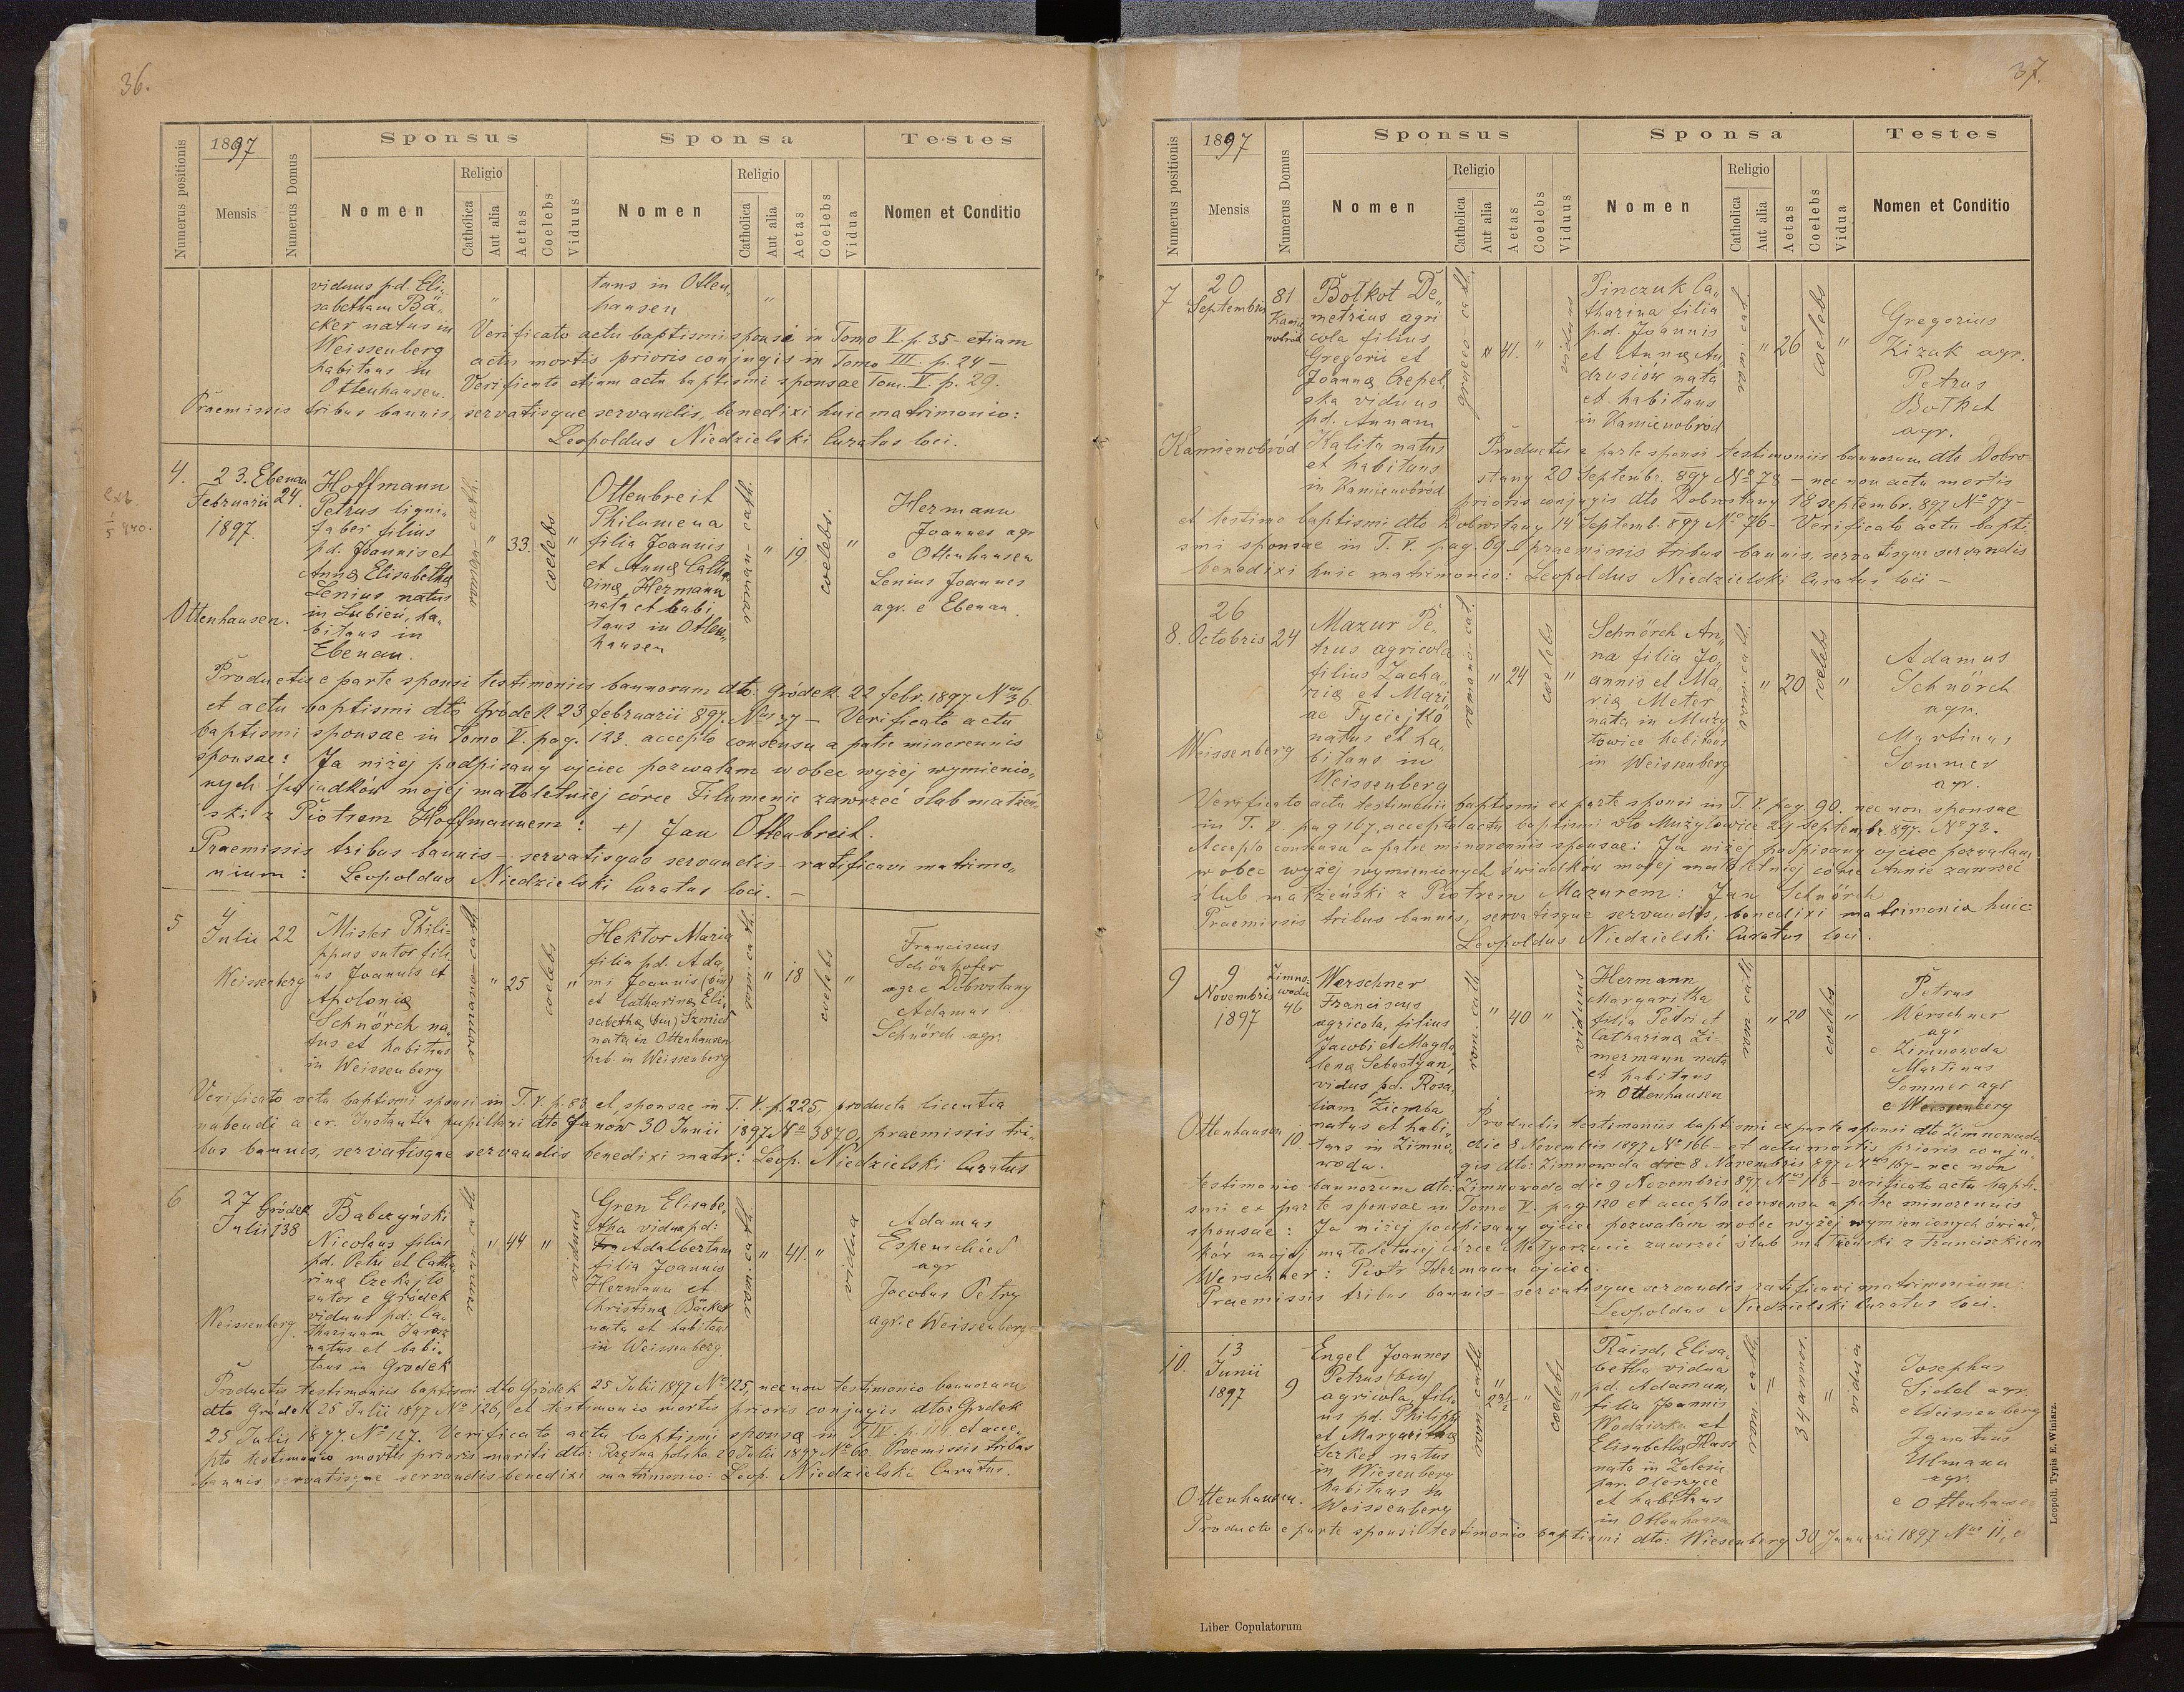 36.
Numerus positionis
1897
Mensis
Numerus Domus
Sponsus
Nomen
Religio
Catholica
Aut alia
Aetas
Coelebs
Viduus
Sponsa
Nomen
Religio
Catholica
Aut alia
Aetas
Coelebs
Vidua
Testes
Nomen et Conditio
viduus pd. Eli„
sabetham Bä„
cker natus in
Weissenberg
habitans in
Ottenhausen.
tans in Otten„
hausen
Verificato actu baptismi sponsi in Tomo V. p. 35 – etiam
actu mortis prioris conjugis in Tomo III. p. 24 –
Verificato etiam actu baptismi sponsae Tom. V. p. 29.
Praemissis tribus bannis, servatisque servandis, benedixi huic matrimonio:
Leopoldus Niedzielski Curatus loci.
4.
23. Ebenau
Februarii 24.
1897.
Ottenhausen.
Hoffmann
Petrus ligni„
faber filius
pd. Joannis et
Annæ Elisabethæ
Lenius natus
in Lubień, ha„
bitans in
Ebenau.
„ 33. coelebs „
Ottenbreit
Philumena
filia Joannis
et Annæ Catha
rinæ Hermann
nata et habi
tans in Otten„
hausen
„ 19 coelebs. „
Hermann
Joannes agr
e Ottenhausen
Lenius Joannes
agr. e Ebenau.
Productis e parte sponsi testimoniis bannorum dto. Gródek 22 febr. 1897 Nus 36.
et actu baptismi dto Gródek 23 februarii 897. Nus 37 – Verificato actu
baptismi sponsae in Tomo V. pag. 123. accepto consensu a patre minorennis
sponsae: Ja niżej podpisany ojciec pozwalam wobec wyżej wymienio„
nych świadków mojej małoletniej córce Filumenie zawrzeć ślub małżeń„
ski z Piotrem Hoffmannem: +/ Jan Ottenbreit.
Praemissis tribus bannis – servatisque servandis – ratificavi matrimo„
nium: Leopoldus Niedzielski Curatus loci. –
5
4
Julii 22
Weissenberg
Mister Phili„
ppus sutor fili„
us Joannis et
Apoloniæ
Schnörch na„
tus et habitans
in Weissenberg
„ 25 coelebs „
Hektor Maria
filia pd. Ada„
mi Joannis (bin)
et Catharinæ Eli„
sabethæ (bin) Szmied
nata in Ottenhausen
hab. in Weissenberg
„ 18 coelebs „
Franciscus
Schönhofer
agr. e Dobrostany
Adamus
Schnörch agr.
Verificato actu baptismi sponsi in T. V. p. 83 et sponsae in T. V. p. 225, producta licentia
nubendi a cr. Instantia pupillari dto Janów 30 Junii 1897 No 3870, praemissis tri„
bus bannis, servatisque servandis benedixi matr: Leop. Niedzielski Curatus
6
27 Gródek
Julii 138
Weissenberg.
Babczyński
Nicolaus filius
pd. Petri et Catha„
rinæ Czekajło
sutor e Gródek
viduus pd. Ca„
tharinam Jarosz
natus et habi„
tans in Gródek
„ 44 „ viduus
Gren Elisabe„
tha vidua pd:
Adalbertum
filia Joannis
Hermann et
Christinæ Bäcker
nata et habitans
in Weissenberg.
„ 41. „ vidua
Adamus
Espenschied
agr
Jacobus Petry
agr. e Weissenberg
Productis testimoniis baptismi dto Gródek 25 Julii 1897 No 125, nec non testimonio bannorum
dto Gródek 25 Julii 1897 No 126, et testimonio mortis prioris conjugis dto: Gródek
25 Julii 1897. No 127. Verificato actu baptismi sponsæ in T. IV. p. 114 et acce„
pto testimonio mortis prioris mariti dto: Rzęsna polska 20 Julii 1897 No 60. Praemissis tribus
bannis servatisque servandis benedixi matrimonio: Leop. Niedzielski Curatus.
37.
Numerus positionis
1897
Mensis
Numerus Domus
Sponsus
Nomen
Religio
Catholica
Aut alia
Aetas
Coelebs
Viduus
Sponsa
Nomen
Religio
Catholica
Aut alia
Aetas
Coelebs
Vidua
Testes
Nomen et Conditio
7
20
Septembris
81
Kamienobród
Bołkot De„
metrius agri
cola filius
Gregorii et
Joannæ Czepel„
ska viduus
pd. Annam
Kalita natus
et habitans
in Kamienobród
„ 41. „ viduus
Pinczuk Ca„
tharina filia
pd. Joannis
et Annæ An„
drusiów nata
et habitans
in Kamienobród
„ 26 coelebs „
Gregorius
Zizak agr.
Petrus
Bołkot
agr.
Productis e parte sponsi testimoniis bannorum dto Dobro
stany 20 Septembr. 897 No 78 – nec non actu mortis
prioris conjugis dto Dobrostany 18 septembr. 897 No 77 –
et testimo baptismi dto Dobrostany 14 Septemb. 897 No 76 – Verificato actu bapti
smi sponsae in T. V. pag. 69 – praemissis tribus bannis, servatisque servandis
benedixi huic matrimonio: Leopoldus Niedzielski Curatus loci –
8.
26
Octobris 24
Weissenberg
Mazur Pe„
trus agricola
filius Zacha„
riæ et Mari
ae Tyciejko
natus et ha„
bitans in
Weissenberg
„ 24 coelebs „
Schnörch An„
na filia Jo„
annis et Ma„
riæ Meter
nata in Muży
łowice habitans
in Weissenberg
„ 20 coelebs „
Adamus
Schnörch
agr.
Martinus
Sommer
agr.
Verificato actu testimonii baptismi ex parte sponsi in T. V. pag. 90. nec non sponsae
in T. V. pag 167. accepto actu baptismi dto Mużyłowice 29 Septembr. 897. No 73.
Accepto consensu a patre minorennis sponsae: Ja niżej podpisany ojciec pozwalam
wobec wyżej wymienionych świadków mojej małoletniej córce Annie zawrzeć
ślub małżeński z Piotrem Mazurem: Jan Schnörch
Praemissis tribus bannis, servatisque servandis, benedixi matrimonio huic:
Leopoldus Niedzielski Curatus loci.
9
9
Novembris
1897
Zimno„
woda
46
Ottenhausen 10.
Werschner
Franciscus
agricola, filius
Jacobi et Magda„
lenæ Sebastyan,
vidus pd. Rosa„
liam Ziemba
natus et habi„
tans in Zimno„
woda.
„ 40 „ viduus
Hermann
Margaritha
filia Petri et
Catharinæ Zi„
mermann nata
et habitans
in Ottenhausen
„ 20 coelebs „
Petrus
Werschner
agr
e Zimnowoda
Martinus
Sommer agr
e Weissenberg
Productis testimoniis baptismi ex parte sponsi dto Zimnowoda
die 8 Novembris 1897 No 166 – et actu mortis prioris conju„
gis dto: Zimnowoda die 8 Novembris 897 Nus 167 – nec non
testimonio bannorum dto: Zimnowoda die 9 Novembris 897. Nus 168 – verificato actu bapti„
smi ex parte sponsae in Tomo V. pag 120 et accepto consensu a patre minorennis
sponsae: Ja niżej podpisany ojciec pozwalam wobec wyżej wymienionych świad„
ków mojej małoletniej córce Małgorzacie zawrzeć ślub małżeński z Franciszkiem
Werschner: Piotr Hermann ojciec.
Praemissis tribus bannis – servatisque servandis ratificavi matrimonium:
Leopoldus Niedzielski Curatus loci.
10.
13
Junii
1897
9
Ottenhausen.
Engel Joannes
Petrus (bin)
agricola, fili„
us pd. Philippi
et Margarithæ
Serkes natus
in Wiesenberg
habitans in
Weissenberg
„ 23½ „ coelebs „
Raisch Elisa„
betha vidua
pd. Adamum
filia Joannis
Wodziczka et
Elisabethæ Hass
nata in Zalesie
par. Oleszyce
et habitans
in Ottenhausen
34 annor. vidua
Josephus
Sidel agr.
e Weissenberg
Ignatius
Ulmann
agr.
e Ottenhausen
Producto e parte sponsi testimonio baptismi dto: Wiesenberg 30 Januarii 1897 Nus 11, e
Liber Copulatorum
Leopoli. Typis E. Winiarz.